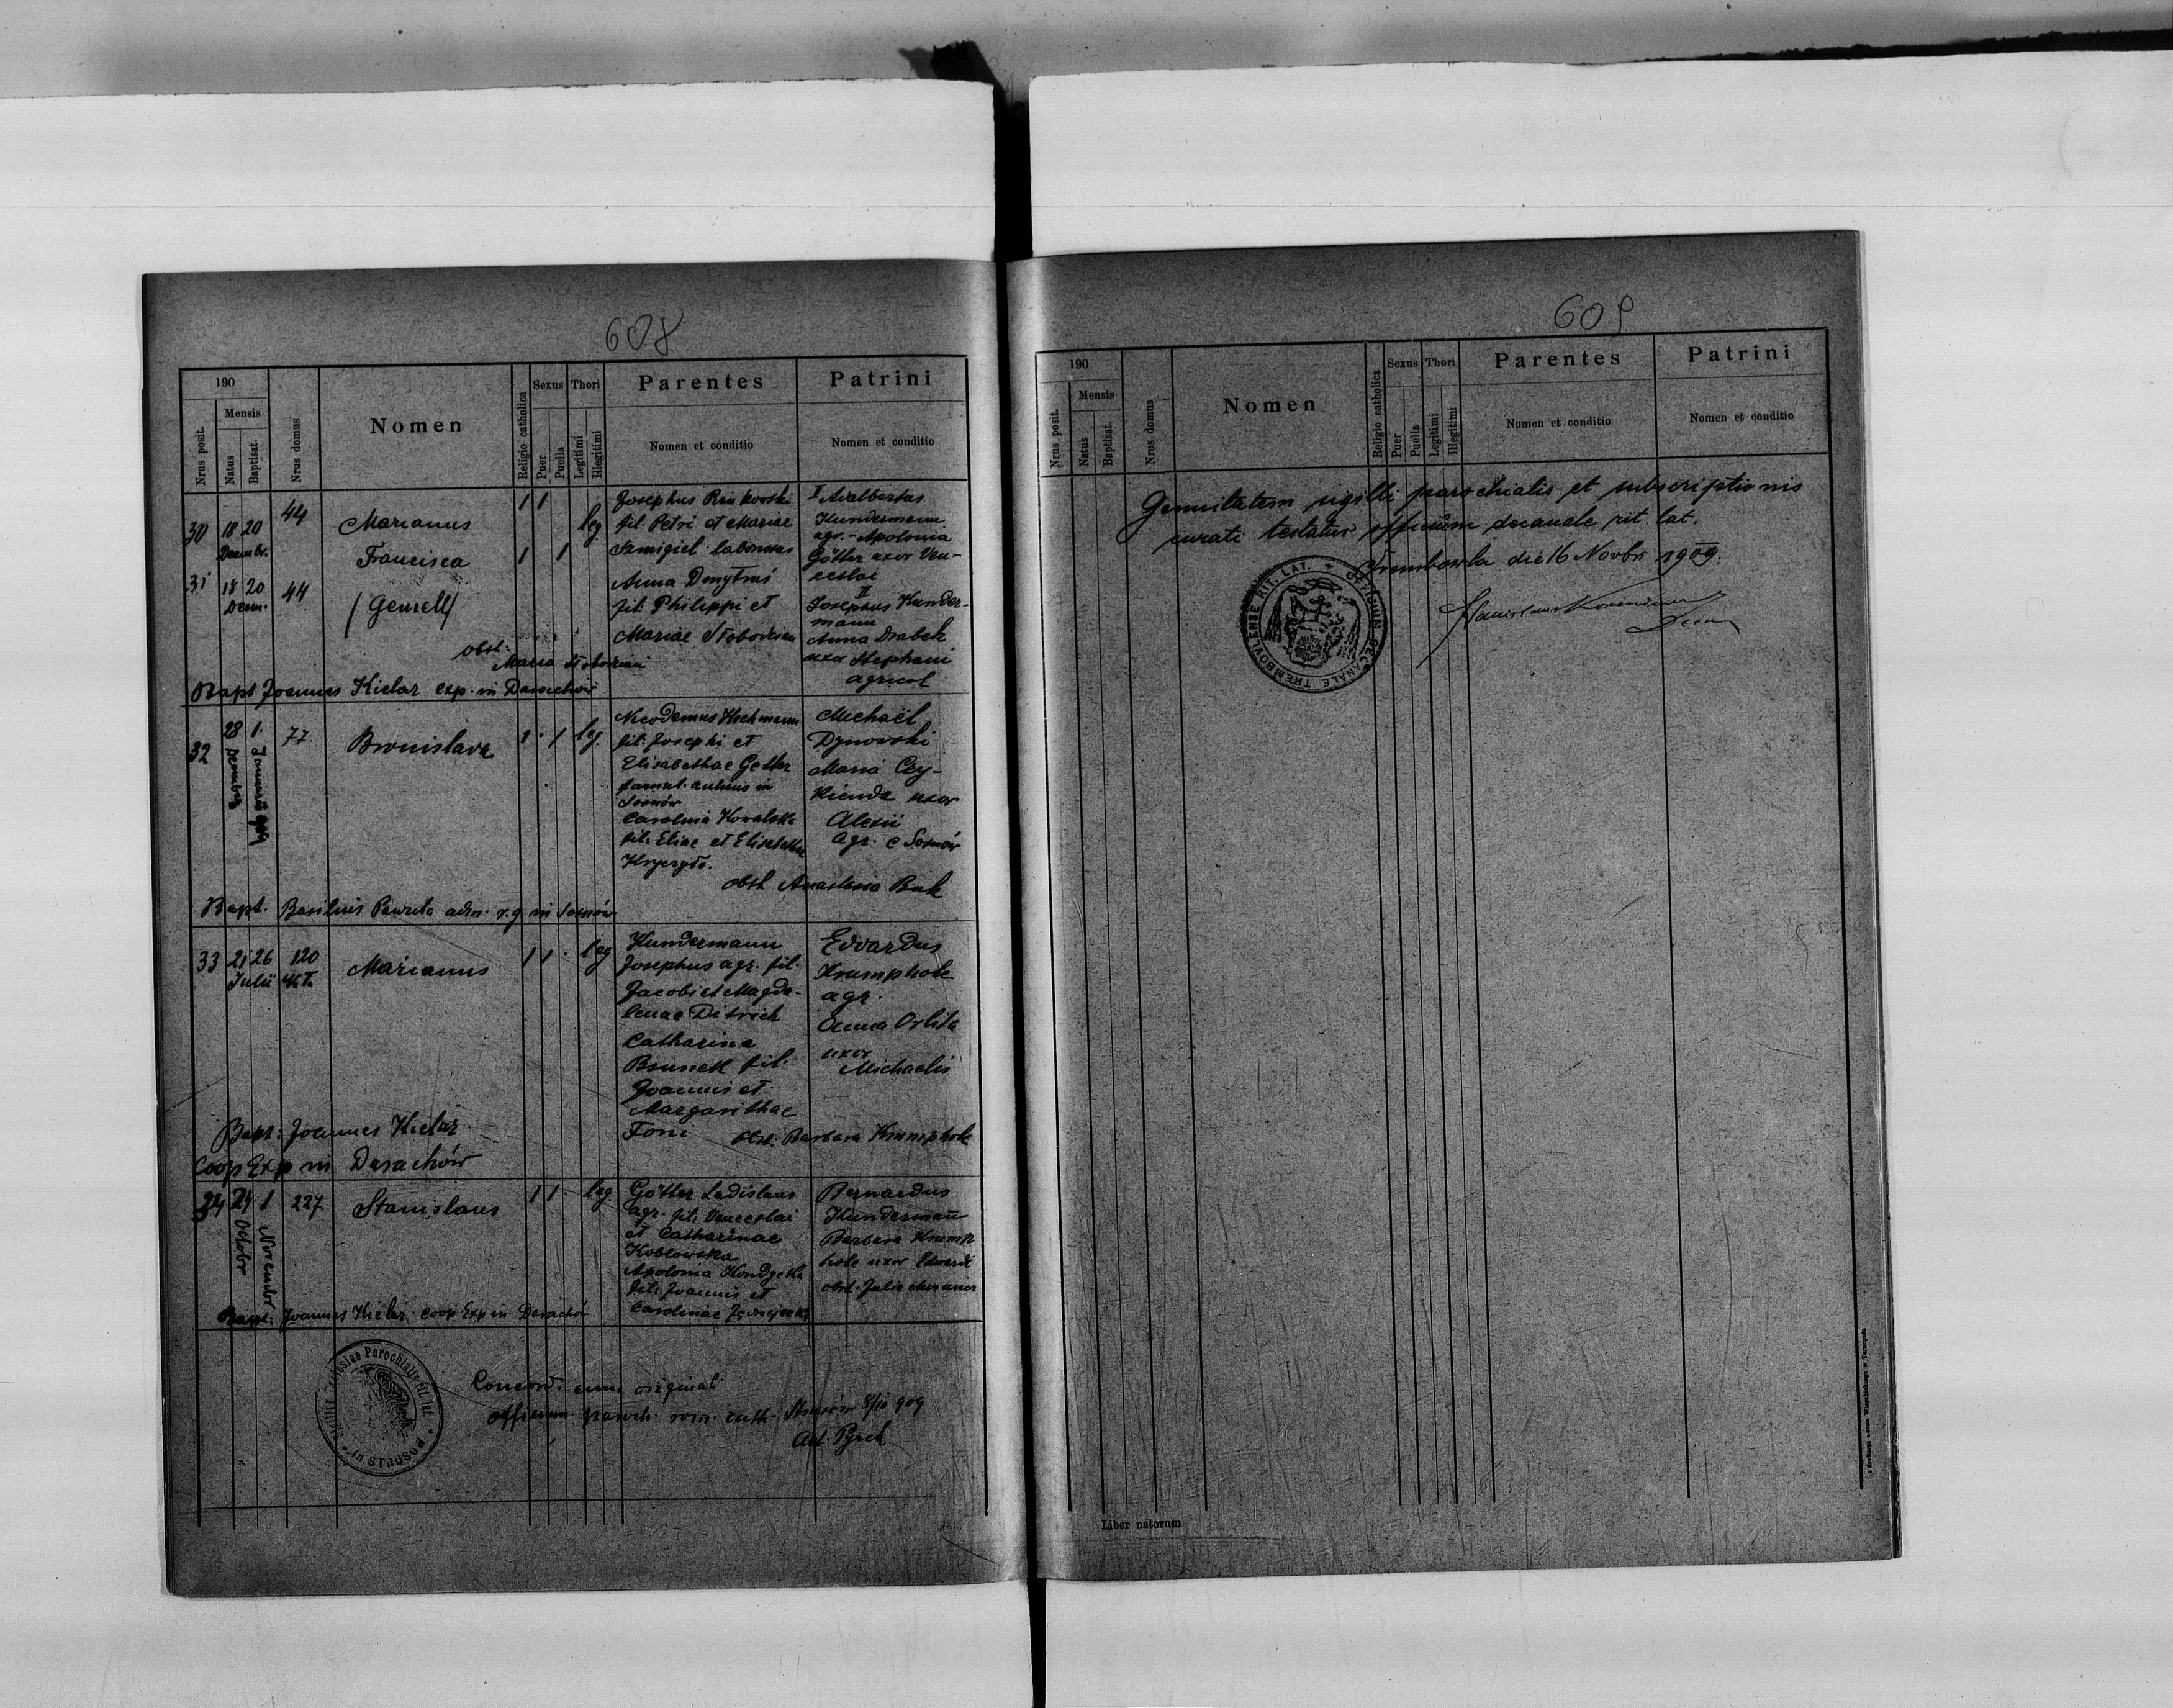 608
190
Nrus posit.
Mensis
Natus
Baptisat.
Nrus domus
Nomen
Religio catholica
Sexus
Puer
Puella
Thori
Legitimi
Illegitimi
Parentes
Nomen et conditio
Patrini
Nomen et conditio
30 18 20 44 Marianus 1 1 leg
Decembr.
31 18 20 44 Francisca 1 1
Decem. (Gemelli)
Josephus
fil. Petri et Mariae
Anna
fil. Philippi et
Mariae
I Adalbertus
Kundermann
agr. - Apolonia
Götter uxor Ven-
ceslai
II
Josephus Kunder-
mann
Anna Drabek
uxor Stephani
agricol
obst:
Maria
Bapt Joannes Kielar exp. in Darachów
32 28 1. 77. Bronislava 1 · 1 leg.
Decembris Januarii
Nicodemus
fil. Josephi et
Elisabethae Getter
famul. in
Sosnów
Carolina Kowalska
fil. Eliae et Elisabethae
Michaël
Dynowski
Maria Cey-
uxor
Alexii
agr. e Sosnów
obst Anastasia Buk
Bapt. Basilius adm. r. g. in Sosnów
33 21 26 120 Marianus 1 1 · leg
Julii
Kundermann
Josephus agr. fil.
Jacobi et Magda-
lenae Ditrich
Catharina
fil.
Joannis et
Margarithae
Foni
Edvardus
Krumpholc
agr.
Anna Orlita
uxor
Michaelis
Obst: Barbara Krumpholc
Bapt: Joannes Kielar
Coop Exp in Darachów
34 24 1 227. Stanislaus 1 1 leg
Octobr Novembr
Götter Ladislaus
agr. fil: Venceslai
et Catharinae
Kozlowska
Apolonia
fil: Joannis et
Carolinae
Bernardus
Kundermann
Barbara Krump
holc uxor Edwardi
obst. Julia
Bapt: Joannes Kielar coop. Exp in Darachów
Ecclesiae Parochialis rit. lat. in STRUSÓW
Concord. cum originali
Officium paroch. Strusów 8/11 909
Ant. Pyrch
609
190
Nrus posit.
Mensis
Natus
Baptisat.
Nrus domus
Nomen
Religio catholica
Sexus
Puer
Puella
Thori
Legitimi
Illegitimi
Parentes
Nomen et conditio
Patrini
Nomen et conditio
Genuitatem sigilli parochialis et subscriptionis
curati testatur officium decanale rit. lat.
Trembowla die 16 Novbr 1909.
OFFICIUM DECANALE TREMBOVLENSE RIT. LAT.
Liber natorum